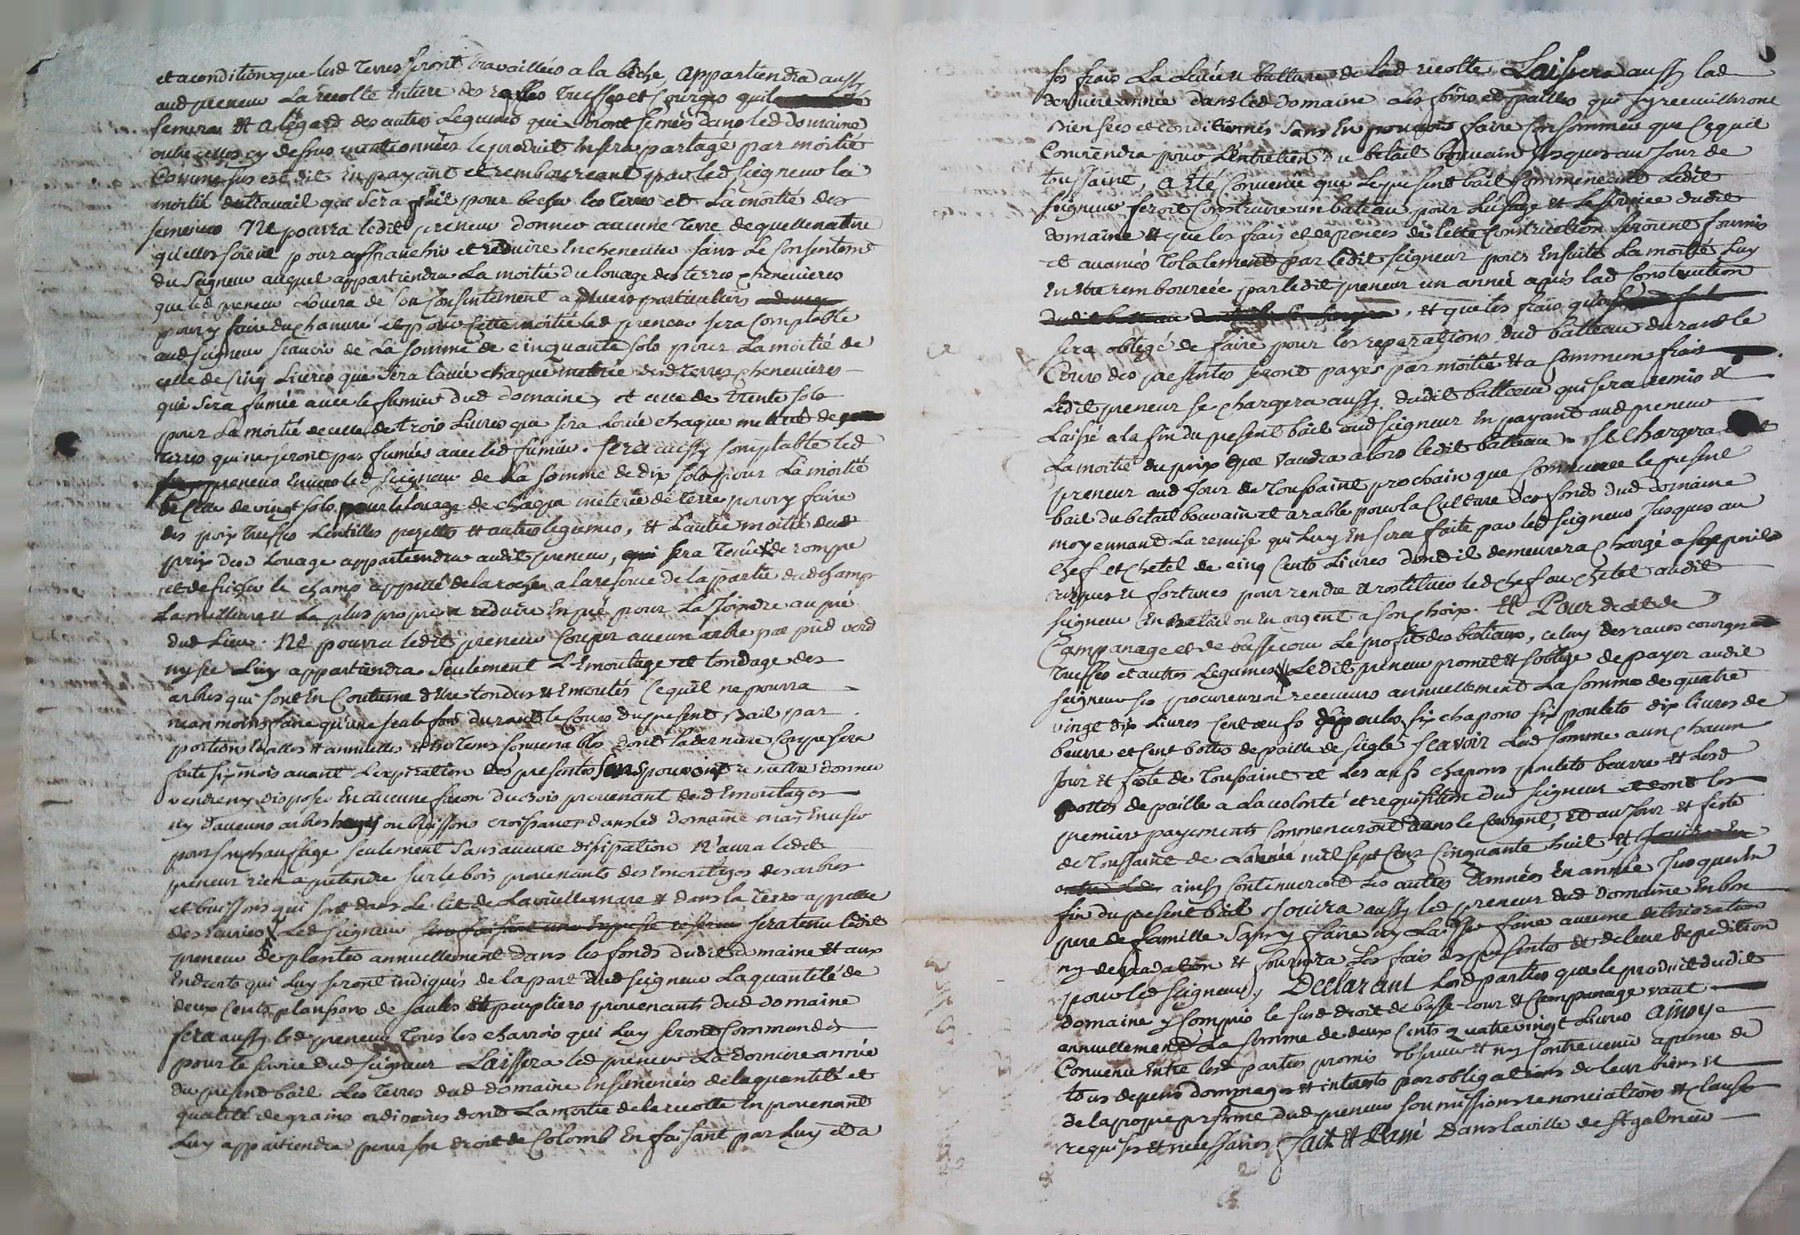 et a condition que lesd terres seront travaillées a la bêche, appartiendra aussy
aud preneur La recolte Entiere des truffes et Courges quil
semera Et a legard des autres Legumes qui seront semés dans led domaine
outre celles cy dessus mentionnées le produit En sera partagé par moitié
Comme sus est dit En payant et remboursant par led seigneur la
moitié du travail qui sera fait pour becher les terres et La moitié des
semences Ne pourra ledit preneur donner aucune terre de quelle nature
qu'elles soient pour affranchir et reduire En cheneviere sans Le Consentement
du Seigneur auquel appartiendra La moitié du louage des terres chenevieres
que led preneur Louera de son Consentement a particuliers
pour y faire du chanvre et pour cette moitié led preneur sera Comptable
aud seigneur scavoir de La somme de cinquante sols pour La moitié de
celle de Cinq Livres que sera louée chaque metrée desd terres chenevieres
qui sera fumée avec le fumier dud domaine, et celle de trente sols
pour La moitié de celle de trois Livres que sera Louée chaque metrée de
terres qui ne seront pas fumées avec led fumier. Sera aussy Comptable led
preneur Envers led seigneur de La somme de dix sols pour La moitié
de Celle de vingt sols pour le louage de chaque meterée de terre pour y faire
des poix truffes Lentilles pezettes et autres legumes, et L'autre moitié dud
prix des Louage appartiendra audit preneur, sera tenu de rompre
et defricher le champ appellé de la roche a la reserve de la partie dud champ
La meilleure et La plus propre a reduire En pré pour La joindre au pré
dud Lieu. Ne pourra ledit preneur Couper aucun arbre par pied verd
ny sec Luy appartiendra seulement L'Emontage et tondage des
arbres qui sont En Coutume d'être tondus et Emontés Ce quil ne pourra
neanmoins faire qu'une seule fois durant le Cours du present Bail par
portions Egalles et annuelles et En tems Convenables dont La derniere Coupe sera
faite six mois avant L'expiration des presentes Sans pouvoir donner
vendre ny disposer En aucune facon du Bois provenant desd Emontages
ny d'aucuns arbres ou buissons croissants dans led domaine mais En user
pour son chauffage seulement sans aucune dissipation N'aura ledit
preneur rien a pretendre sur le bois provenants des Emontages des arbres
et buissons qui sont dans Le Lit de La riviere mare et dans la terre appellée
des Led seigneur sera tenu ledit
preneur de planter annuellement dans les fonds dudit domaine et aux
Endroits qui Luy seront indiqués de la part dud seigneur La quantité de
deux Cents plansons de saules Et peupliers provenants dud domaine
fera aussy led preneur tous les charrois qui Luy seront Commandés
pour le service dud seigneur Laissera led preneur La derniere année
du present bail Les terres dud domaine Ensemencées de la quantité et
qualité de grains ordinaires dont La moitié de la recolte En provenant
Luy appartiendra pour son droit de Colomb En faisant par Luy et a
ses frais La Levée et batture de lad recolte, Laissera aussy lad
derniere année dans led domaine les foins et pailles qui s'y receuilleront
Bien secs et conditionnés sans En pouvoir faire Consommer que Ce quil
Conviendra pour L'entretien du betail bouvain jusques au jour de
toussaint, a Eté Convenu que Le present bail Commencant Ledit
seigneur feroit Construire un bateau pour L'usage et Le service dudit
domaine et que les frais et depences de Cette Construction seroient fournis
et avancés totalement par ledit seigneur pour Ensuite La moitié Luy
En être remboursée par ledit preneur un année apres lad Construction
, et que les frais quil
sera obligé de faire pour les reparations dud batteau durant le
Cours des presentes seront payés par moitié et a Commun frais
Ledit preneur se chargera aussy dudit batteau qui sera remis et
Laissé a la fin du present bail aud seigneur En payant aud preneur
La moitié du prix que vaudra alors ledit batteau. Se Chargera led
preneur aud jour de toussaint prochain que Commence le present
bail du betail bouvain et arable pour la Culture des fonds dud domaine
moyennant La remise qui Luy En sera faite par led seigneur jusques au
Chef et Chetel de cinq Cents Livres dont il demeurera chargé a ses perils
risques et fortunes pour rendre Et restituer led chef ou chetel audit
seigneur En Betail ou En argent a son choix. Et Pour droit de
Campanage et de basse cour Le profit des bestiaux, celuy des raves courges
truffes et autres Legumes Ledit preneur promet et s'oblige de payer audit
seigneur ses procureurs ou receveurs annuellement La somme de quatre
vingt dix Livres Cent oeufs six poules six chapons six poulets dix livres de
beurre et Cent bottes de paille de seigle scavoir Lad somme a un chacun
jour et feste de Toussaint et Les oeufs chapons poulets beurre et Lesd
bottes de paille a La volonté et requisition dud seigneur et dont les
premiers payements Commenceront dans le Courant, et au jour et feste
de Toussaint de L'année mil sept Cent Cinquante huit, et
ainsy Continueront Les autres d'années En année jusques En
fin du present bail jouira aussy led preneur dud domaine En bon
pere de famille sans y faire ny Laisser faire aucune deterioration
ny degradation et fournira Les frais des presentes et de leur Expedition
pour led seigneur, Declarant Lesd parties que le produit dudit
domaine y Compris le sus d droit de basse cour et Campanage vaut
annuellement La somme de deux Cents quatre vingt Livres ainsy
Convenu Entre Lesd parties promis observer et ny Contrevenir a peine de
tous depens dommages et interets par obligations de leur biens et
de la propre personne dud preneur soumissions renonciations et clauses
requises et necessaires, Fait et Passé Dans la ville de st galmier